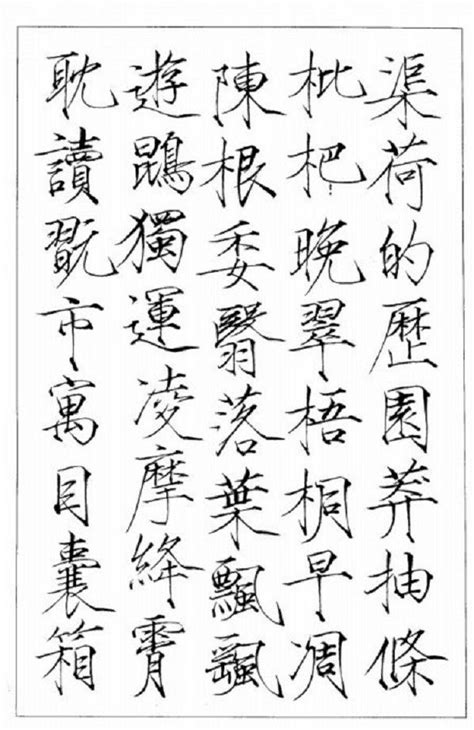 渠荷的歷園莽抽條
枇杷晚翠梧桐早凋
陳根委翳落葉飄颻
遊鵾獨運凌摩絳霄
耽讀翫市寓目囊箱